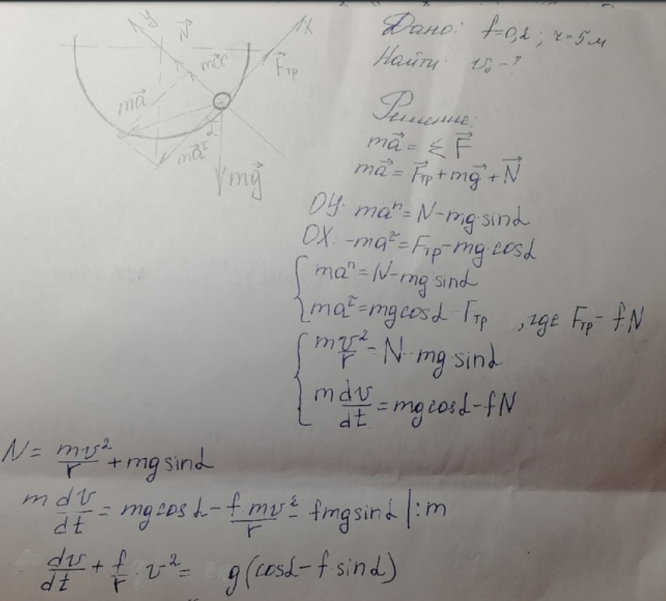 Y
N⃗
X
ma⃗ⁿ
F⃗тр
ma⃗
ma⃗^τ
α
mg⃗
Дано: f=0,2; r=5м
Найти: v₀-?
Решение:
ma⃗ = Σ F⃗
ma⃗ = F⃗тр + mg⃗ + N⃗
OY: maⁿ = N - mg·sinα
OX: -ma^τ = Fтр - mg·cosα
{ maⁿ = N - mg sinα
{ ma^τ = mg cosα - Fтр , где Fтр = fN
{ m v²/r = N - mg sinα
{ m dv/dt = mg cosα - fN
N = mv²/r + mg sinα
m dv/dt = mg cosα - f·mv²/r - fmg sinα |:m
dv/dt + f/r · v² = g(cosα - f·sinα)